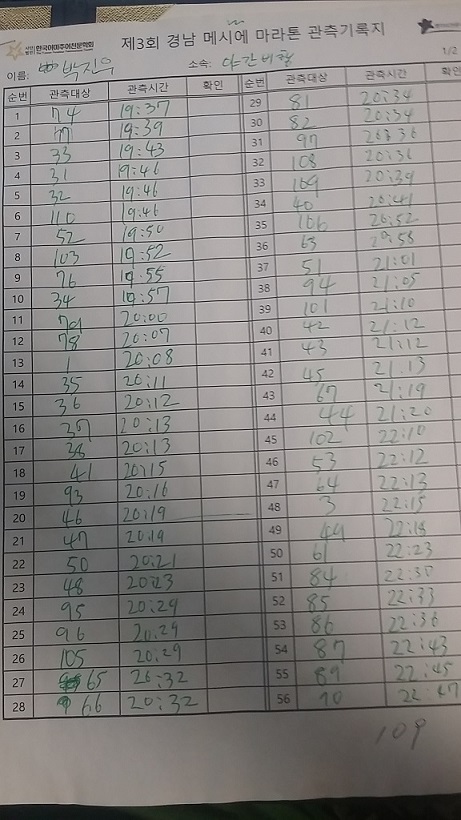 사단법인 한국아마추어천문학회
제3회 경남 메시에 마라톤 관측기록지
1/2
이름: 박진우 소속: 야간비행
순번 관측대상 관측시간 확인
1 74 19:37
2 77 19:39
3 33 19:43
4 31 19:46
5 32 19:46
6 110 19:46
7 52 19:50
8 103 19:52
9 76 19:55
10 34 19:57
11 79 20:00
12 78 20:07
13 1 20:08
14 35 20:11
15 36 20:12
16 37 20:13
17 38 20:13
18 41 20:15
19 93 20:16
20 46 20:19
21 47 20:19
22 50 20:21
23 48 20:23
24 95 20:29
25 96 20:29
26 105 20:29
27 65 20:32
28 66 20:32
순번 관측대상 관측시간 확인
29 81 20:34
30 82 20:34
31 97 20:36
32 108 20:36
33 109 20:39
34 40 20:41
35 106 20:52
36 63 20:58
37 51 21:01
38 94 21:05
39 101 21:10
40 42 21:12
41 43 21:12
42 45 21:13
43 67 21:19
44 44 21:20
45 102 22:10
46 53 22:12
47 64 22:13
48 3 22:15
49 49 22:18
50 61 22:23
51 84 22:30
52 85 22:33
53 86 22:36
54 87 22:43
55 89 22:45
56 90 22:47
109